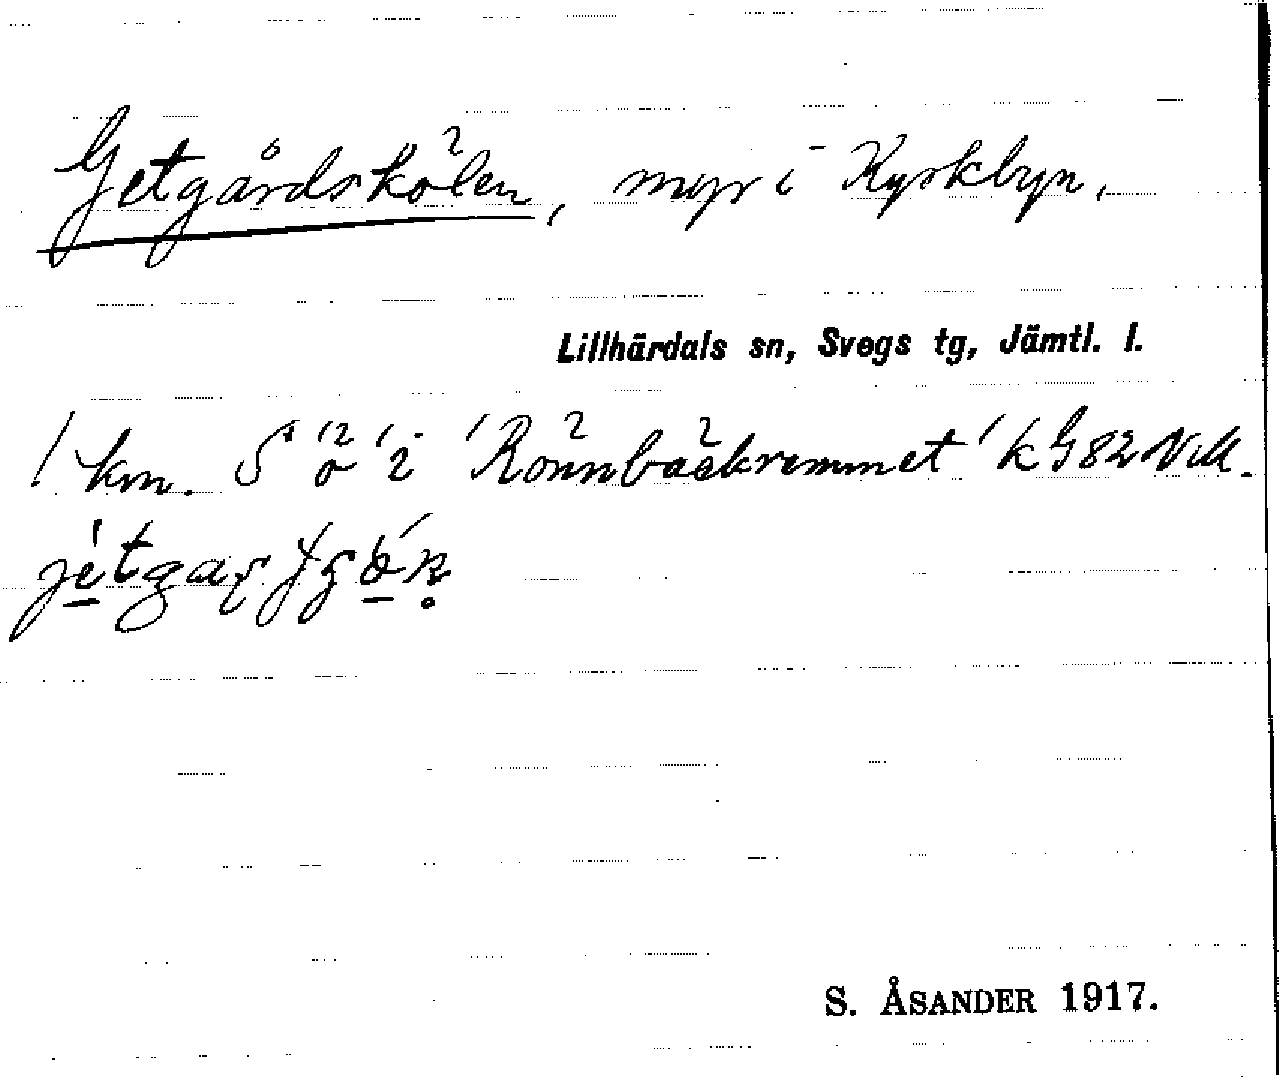 Getgårdskölen, myr i Kyrkbyn.
Lillhärdals sn, Svegs tg, Jämtl. l.
1 km. S ö i 'Rönnbäckremmet' k G82
S. ÅSANDER 1917.